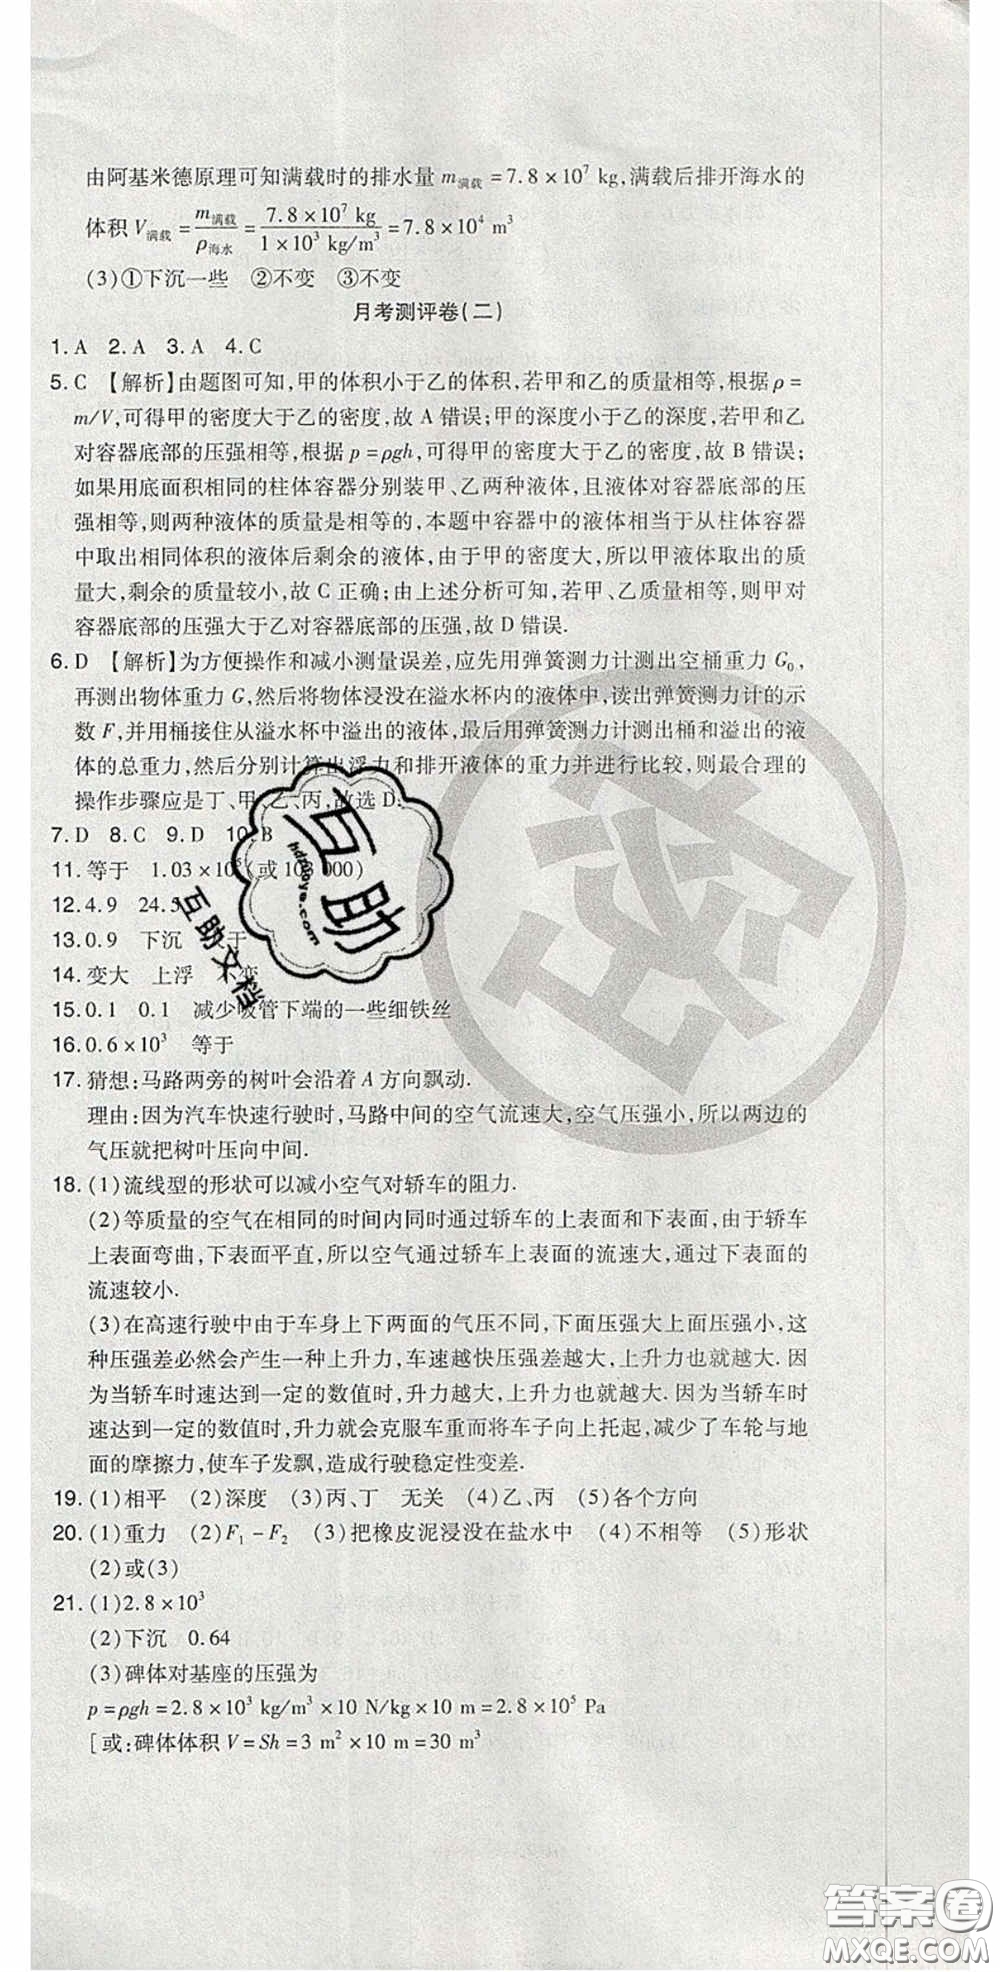 由阿基米德原理可知满载时的排水量 m满载 = 7.8 × 10⁷ kg,满载后排开海水的
体积 V满载 = m满载/ρ海水 = 7.8 × 10⁷ kg/1 × 10³ kg/m³ = 7.8 × 10⁴ m³
(3)①下沉一些 ②不变 ③不变
月考测评卷(二)
1. A 2. A 3. A 4. C
5. C 【解析】由题图可知,甲的体积小于乙的体积,若甲和乙的质量相等,根据 ρ =
m/V,可得甲的密度大于乙的密度,故 A 错误;甲的深度小于乙的深度,若甲和乙
对容器底部的压强相等,根据 p = ρgh,可得甲的密度大于乙的密度,故 B 错误;
如果用底面积相同的柱体容器分别装甲、乙两种液体,且液体对容器底部的压
强相等,则两种液体的质量是相等的,本题中容器中的液体相当于从柱体容器
中取出相同体积的液体后剩余的液体,由于甲的密度大,所以甲液体取出的质
量大,剩余的质量较小,故 C 正确;由上述分析可知,若甲、乙质量相等,则甲对
容器底部的压强大于乙对容器底部的压强,故 D 错误.
6. D 【解析】为方便操作和减小测量误差,应先用弹簧测力计测出空桶重力 G₀,
再测出物体重力 G,然后将物体浸没在溢水杯内的液体中,读出弹簧测力计的示
数 F,并用桶接住从溢水杯中溢出的液体,最后用弹簧测力计测出桶和溢出的液
体的总重力,然后分别计算出浮力和排开液体的重力并进行比较,则最合理的
操作步骤应是丁、甲、乙、丙,故选 D.
7. D 8. C 9. D 10. B
11. 等于 1.03 × 10⁵(或 103 000)
12. 4.9 24.5
13. 0.9 下沉 于
14. 变大 上浮 不变
15. 0.1 0.1 减少吸管下端的一些细铁丝
16. 0.6 × 10³ 等于
17. 猜想:马路两旁的树叶会沿着 A 方向飘动.
理由:因为汽车快速行驶时,马路中间的空气流速大,空气压强小,所以两边的
气压就把树叶压向中间.
18. (1)流线型的形状可以减小空气对轿车的阻力.
(2)等质量的空气在相同的时间内同时通过轿车的上表面和下表面,由于轿车
上表面弯曲,下表面平直,所以空气通过轿车上表面的流速大,通过下表面的
流速较小.
(3)在高速行驶中由于车身上下两面的气压不同,下面压强大上面压强小,这
种压强差必然会产生一种上升力,车速越快压强差越大,上升力也就越大. 因
为当轿车时速达到一定的数值时,升力越大,上升力也就越大. 因为当轿车时
速达到一定的数值时,升力就会克服车重而将车子向上托起,减少了车轮与地
面的摩擦力,使车子发飘,造成行驶稳定性变差.
19. (1)相平 (2)深度 (3)丙、丁 无关 (4)乙、丙 (5)各个方向
20. (1)重力 (2)F₁ − F₂ (3)把橡皮泥浸没在盐水中 (4)不相等 (5)形状
(2)或(3)
21. (1)2.8 × 10³
(2)下沉 0.64
(3)碑体对基座的压强为
p = ρgh = 2.8 × 10³ kg/m³ × 10 N/kg × 10 m = 2.8 × 10⁵ Pa
[或:碑体体积 V = Sh = 3 m² × 10 m = 30 m³
互助
hdzuoye.com
互助文档
密
答案圈
MXQE.COM